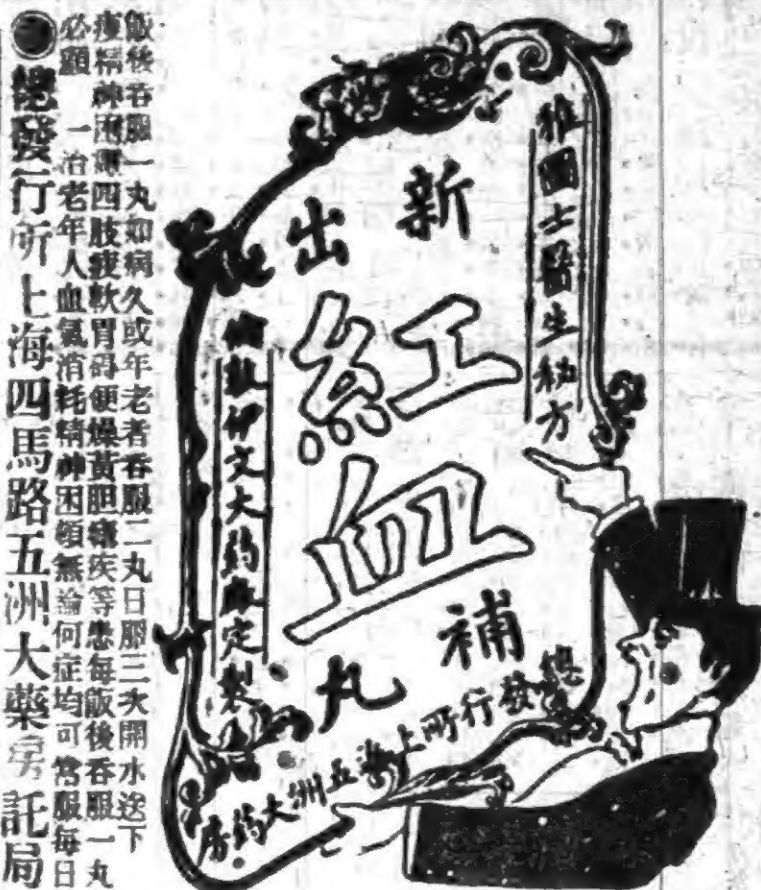 新出
紅血
補丸
雅國士醫生秘方
倫敦伊文大葯廠定製
總發行所上海五洲大葯房
飯後吞服一丸如病久或年老者吞服二丸日服三次開水送下
痩精神困憊四肢疲軟胃弱便燥黃胆癆疾等患每飯後吞服一丸
必願 一治老年人血氣消耗精神困頓無論何症均可常服每日
●總發行所上海四馬路五洲大藥房託局